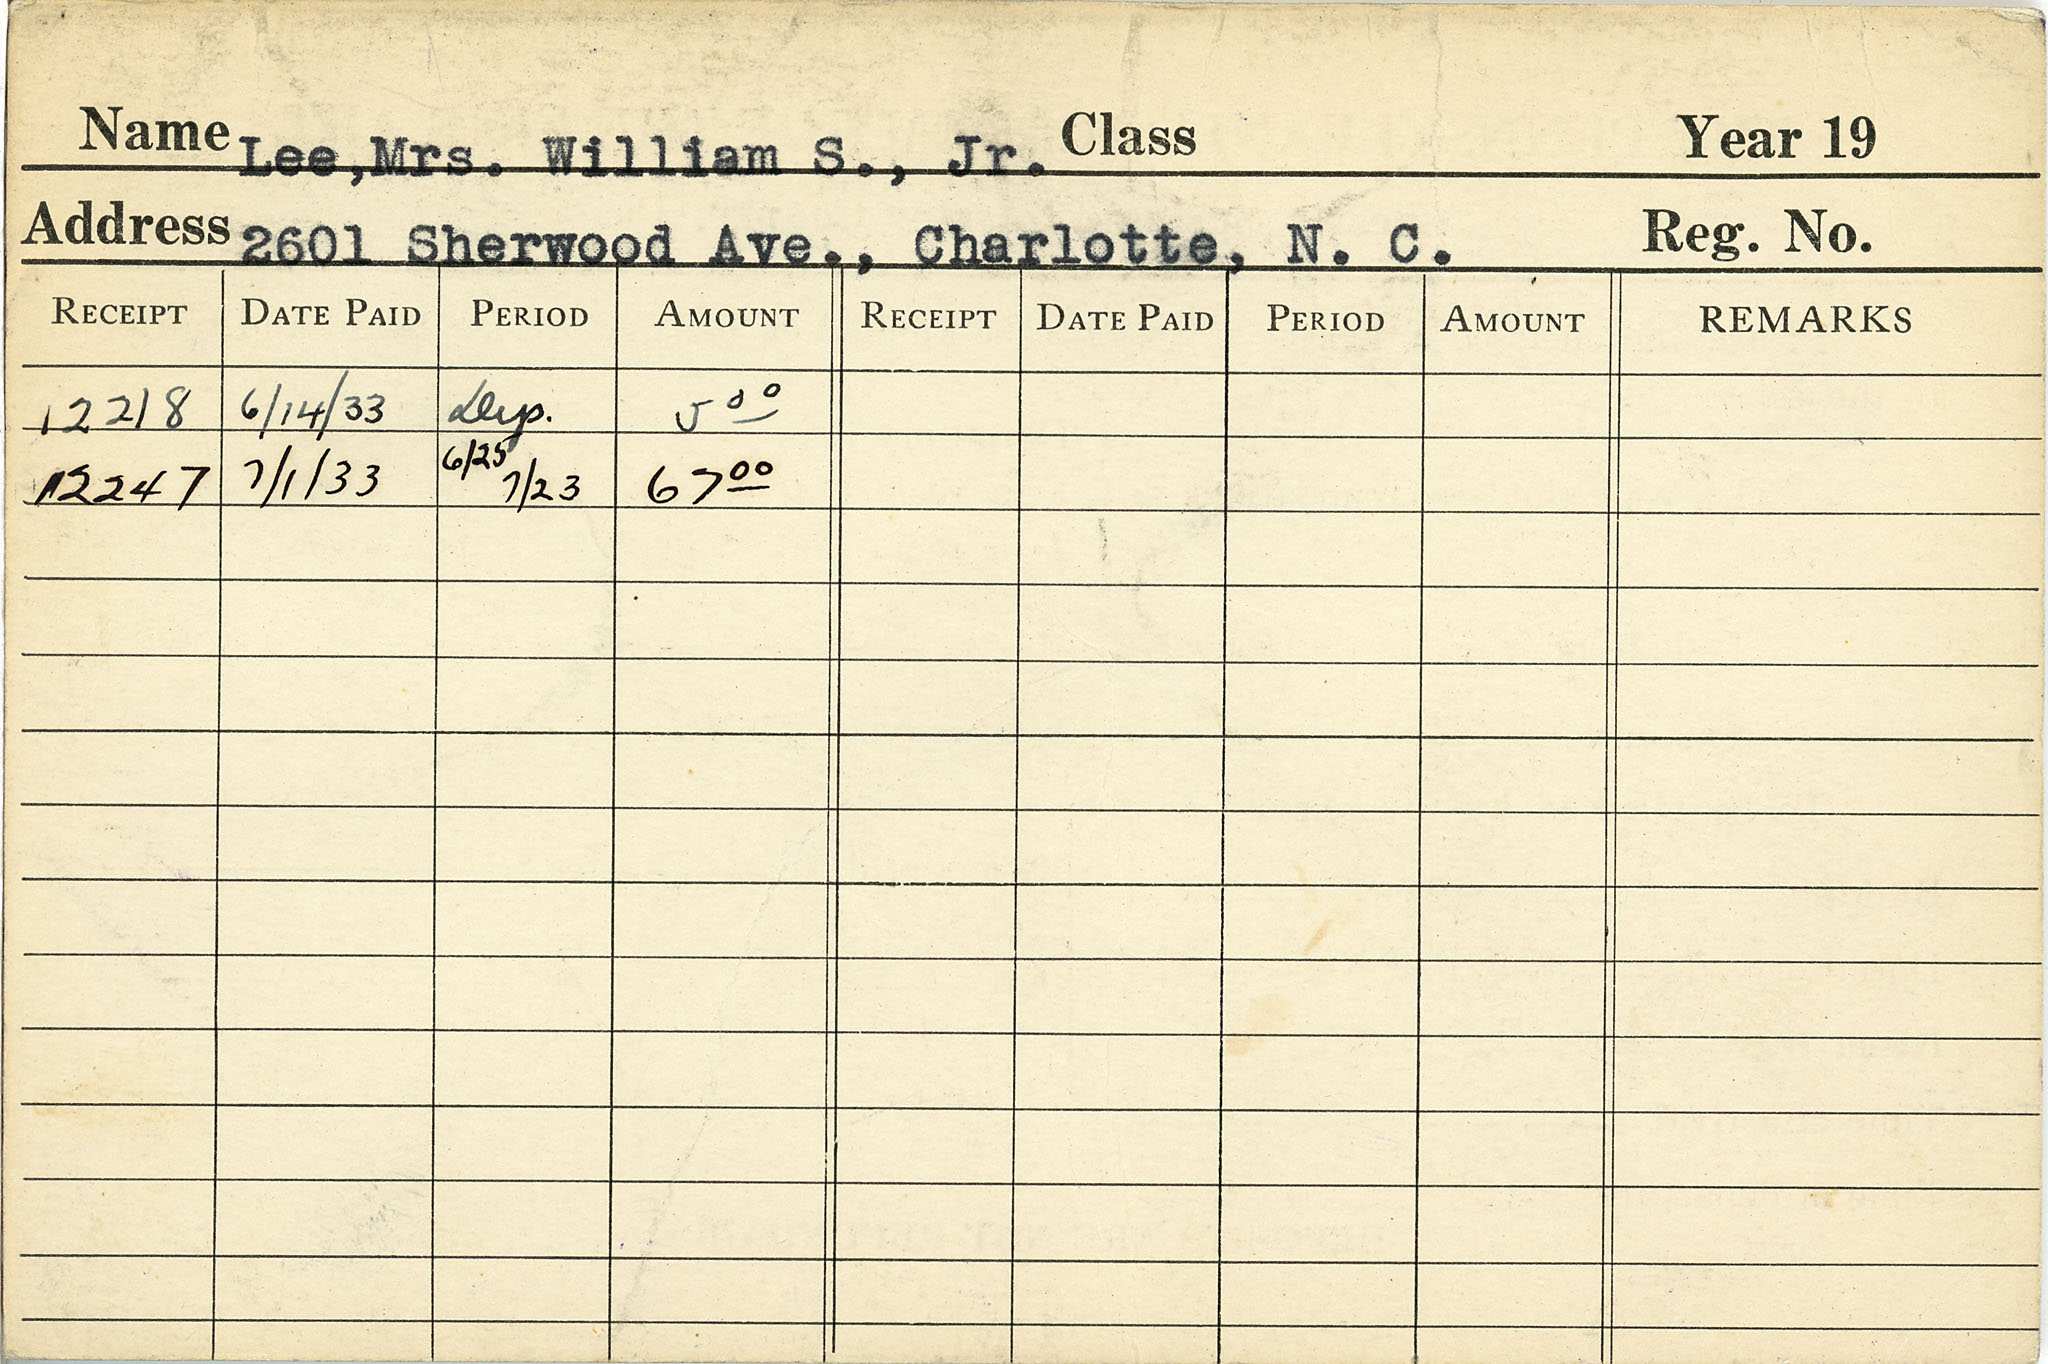 Name Lee,Mrs. William S., Jr. Class Year 19
Address 2601 Sherwood Ave., Charlotte, N. C. Reg. No.
RECEIPT DATE PAID PERIOD AMOUNT RECEIPT DATE PAID PERIOD AMOUNT REMARKS
12218 6/14/33 Dep. 5 00
12247 7/1/33 6/25 7/23 67 00